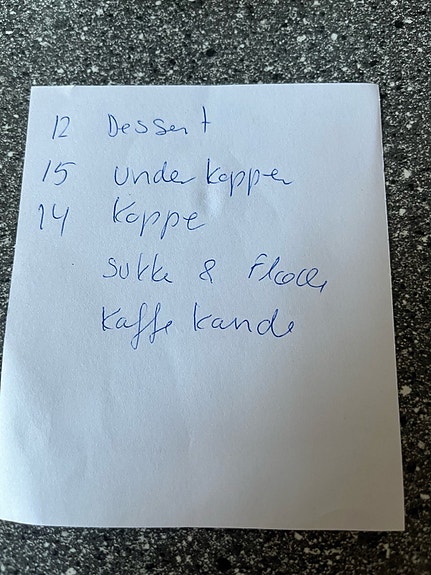 12 Dessert
15 underkopper
14 Koppe
Sukke & Fløde
Kaffe kande